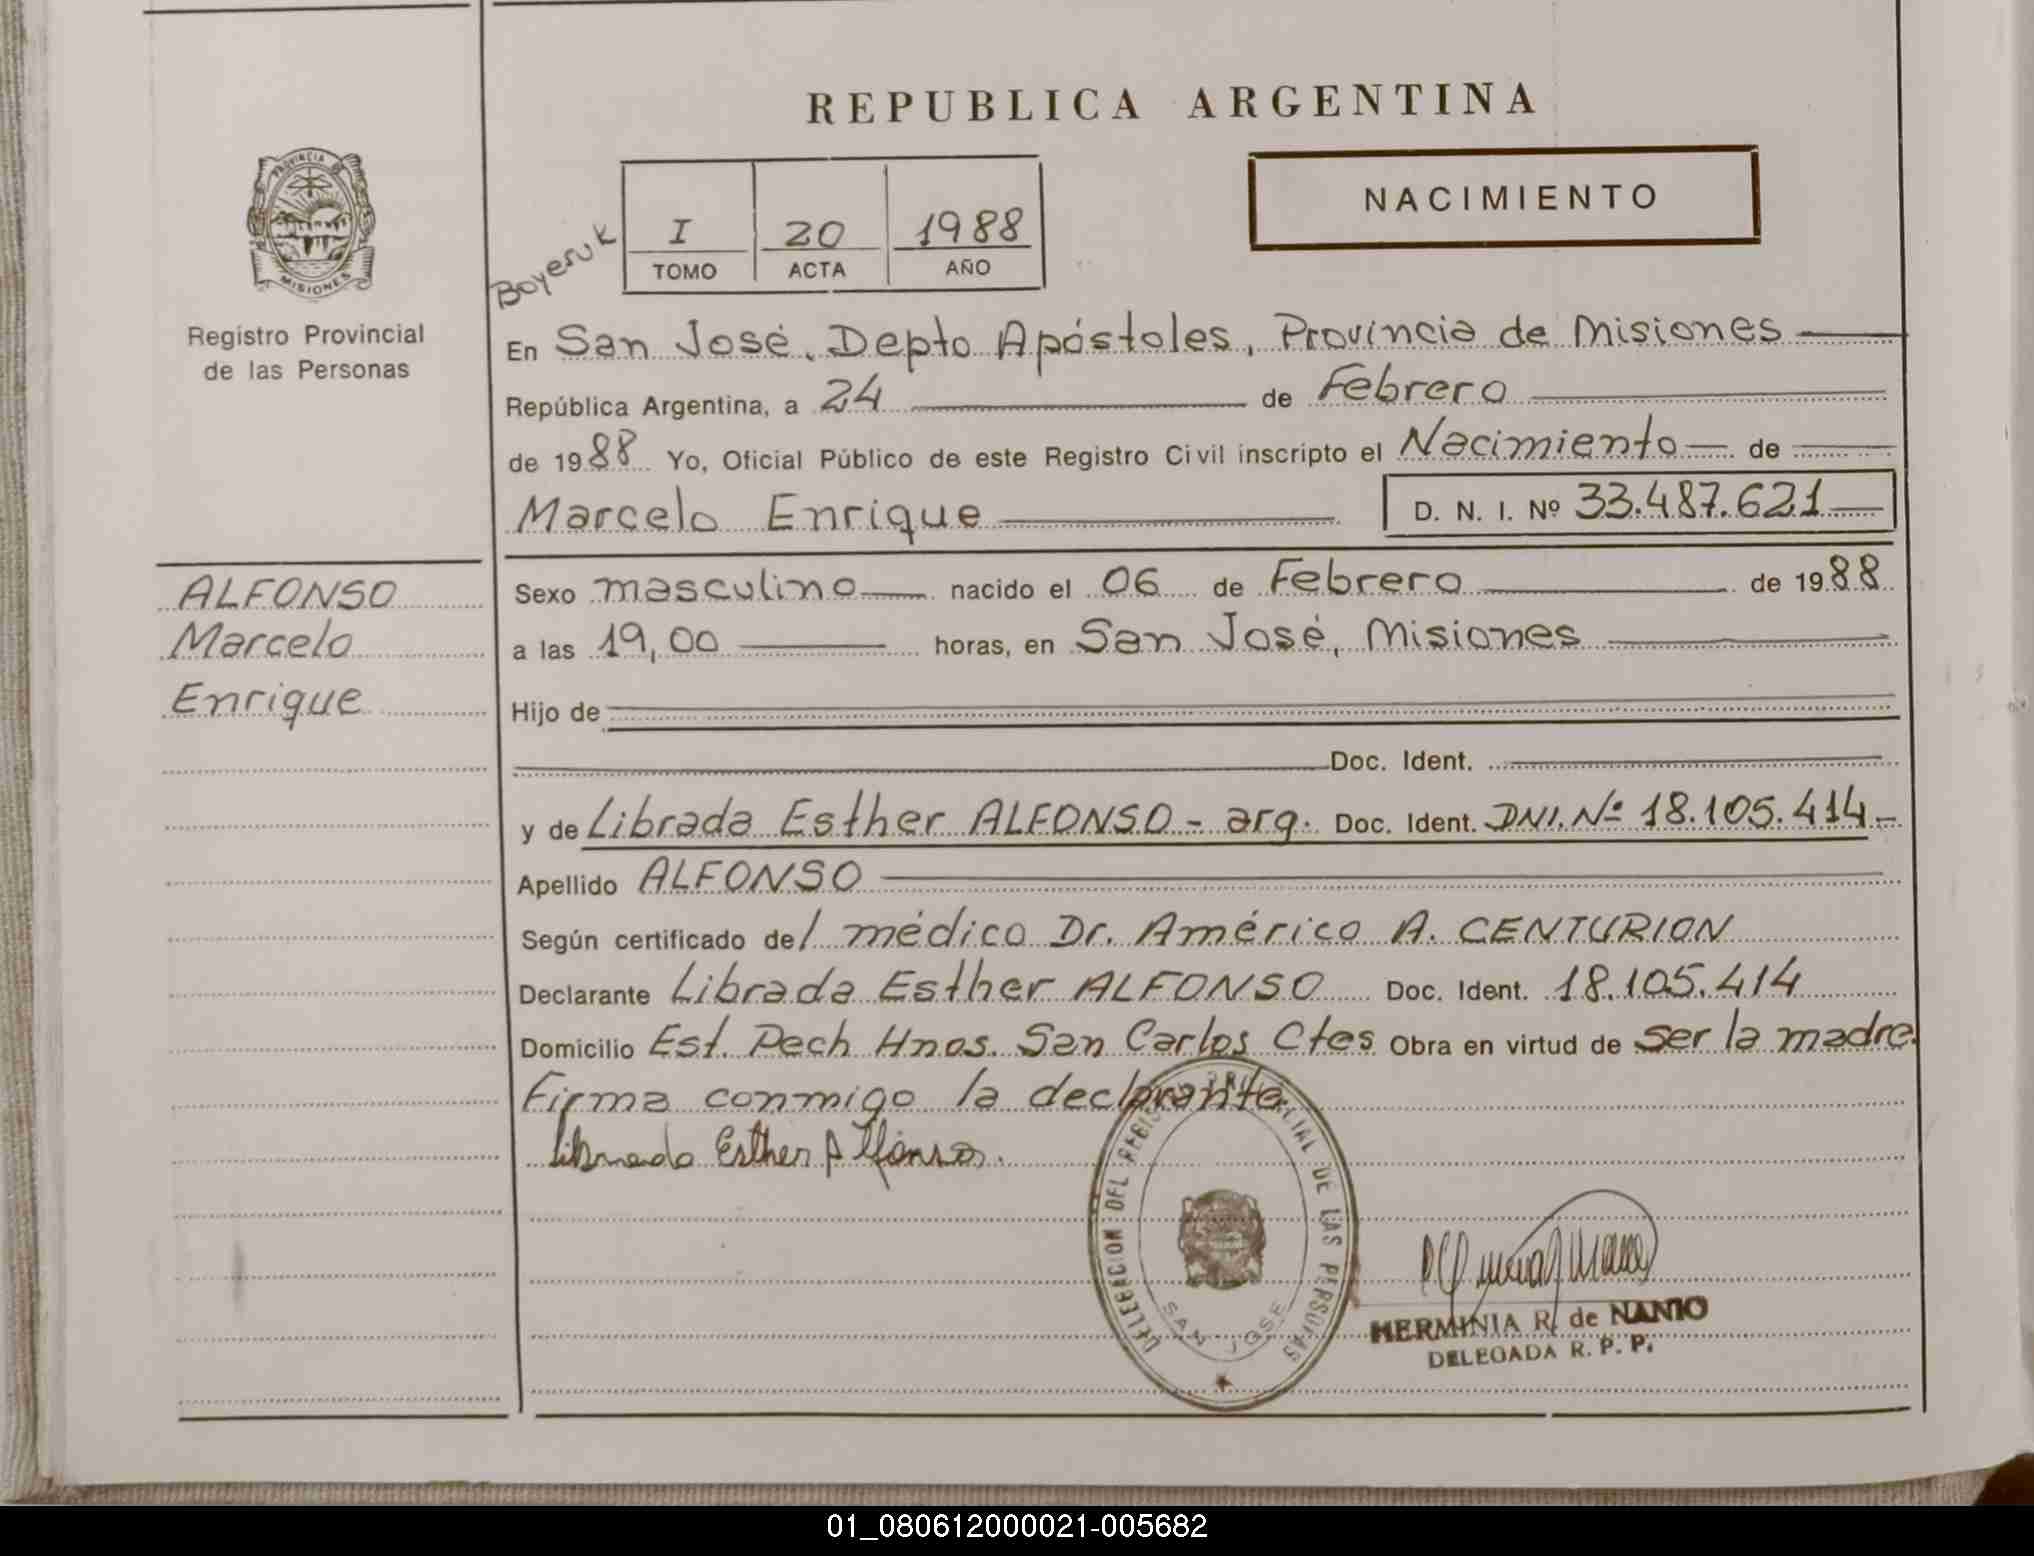 REPUBLICA ARGENTINA
NACIMIENTO
PROVINCIA DE
MISIONES
Registro Provincial
de las Personas
Boyeruk
I 20 1988
TOMO ACTA AÑO
En San José, Depto Apóstoles, Provincia de Misiones
República Argentina, a 24 de Febrero
de 1988 Yo, Oficial Público de este Registro Civil inscripto el Nacimiento de
Marcelo Enrique D. N. I. Nº 33.487.621
ALFONSO
Marcelo
Enrique
Sexo masculino nacido el 06 de Febrero de 1988
a las 19,00 horas, en San José, Misiones
Hijo de
Doc. Ident.
y de Librada Esther ALFONSO - arg. Doc. Ident. DNI. Nº 18.105.414
Apellido ALFONSO
Según certificado del médico Dr. Américo A. CENTURION
Declarante Librada Esther ALFONSO Doc. Ident. 18.105.414
Domicilio Est. Pech Hnos. San Carlos Ctes Obra en virtud de ser la madre.
Firma conmigo la declarante.
Librada Esther Alfonso.
DELEGACION DEL REGISTRO PROVINCIAL DE LAS PERSONAS
SAN JOSE
HERMINIA R. de NANIO
DELEGADA R. P. P.
01_080612000021-005682